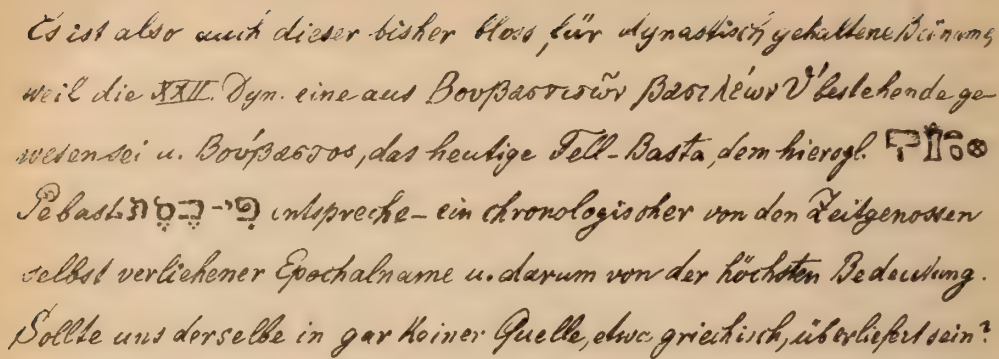 Es ist also auch dieser bisher bloss „für dynastisch“ gehaltene Beiname,
weil die XXII. Dyn. eine aus Βουβαστιτῶν βασιλέων θ' bestehende ge-
wesen sei u. Βούβαστος, das heutige Tell-Basta, dem hierogl.
Pebast פי-בסת entspreche – ein chronologischer von den Zeitgenossen
selbst verliehener Epochalname u. darum von der höchsten Bedeutung.
Sollte uns derselbe in gar keiner Quelle, etwa griechisch, überliefert sein?